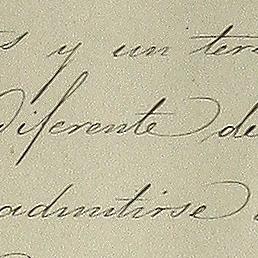 y un
diferente de
admitirse